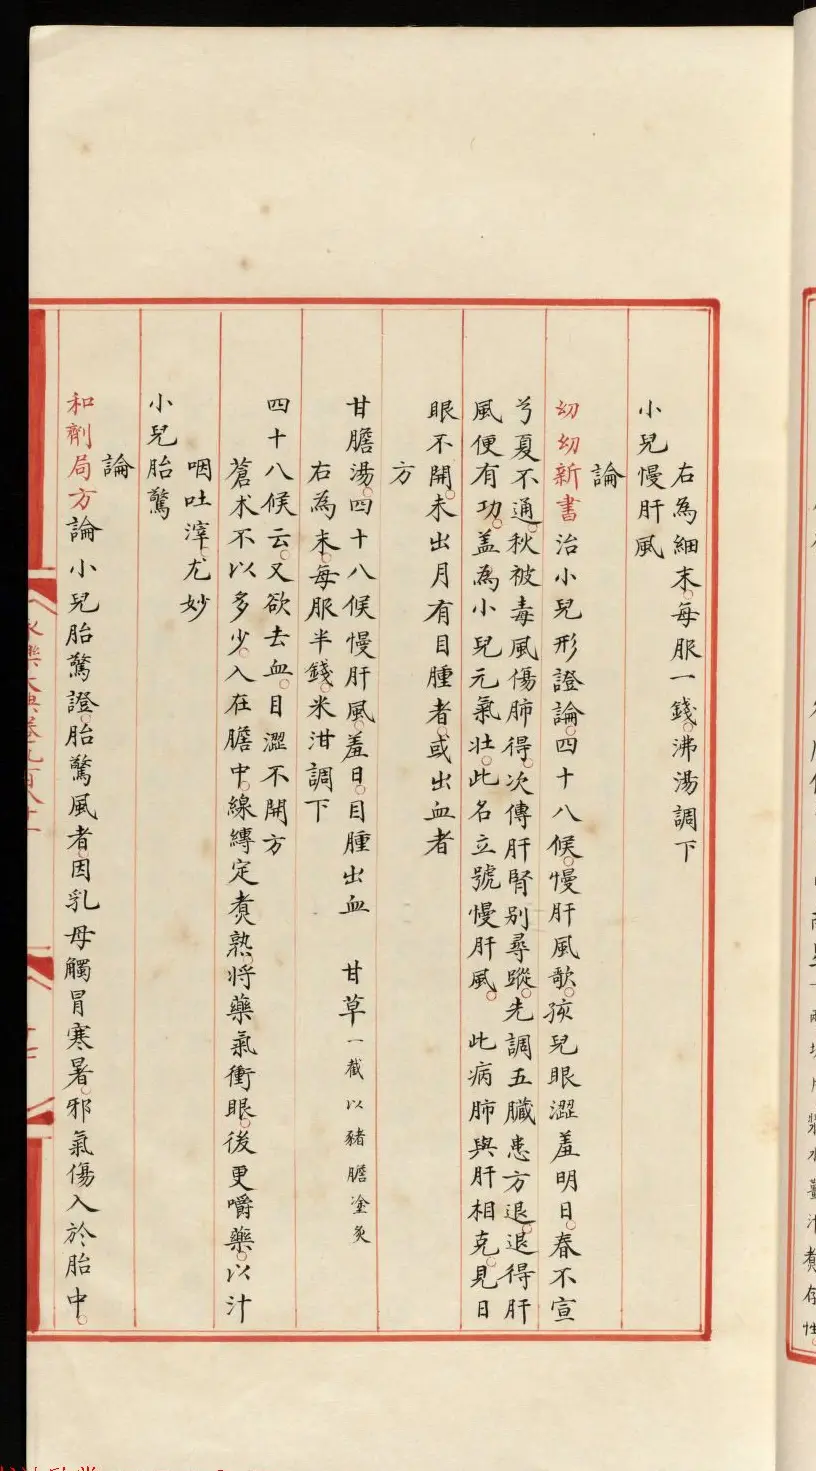 右為細末。每服一錢。沸湯調下
小兒慢肝風
論
幼幼新書治小兒形證論。四十八候。慢肝風歌。孩兒眼澀羞明日。春不宣
兮夏不通。秋被毒風傷肺得。次傳肝腎別尋蹤。先調五臟患方退。退得肝
風便有功。盖為小兒元氣壯。此名立號慢肝風。 此病肺與肝相克。見日
眼不開。未出月有目腫者。或出血者
方
甘膽湯。四十八候慢肝風。羞日。目腫出血 甘草一截以豬膽塗炙
右為末。每服半錢。米泔調下
四十八候云。又欲去血。目澀不開方
蒼术不以多少。入在膽中。線縛定煑熟。將藥氣衝眼。後更嚼藥。以汁
咽吐滓。尤妙
小兒胎驚
論
和劑局方論小兒胎驚證。胎驚風者。因乳母觸冒寒暑。邪氣傷入於胎中。